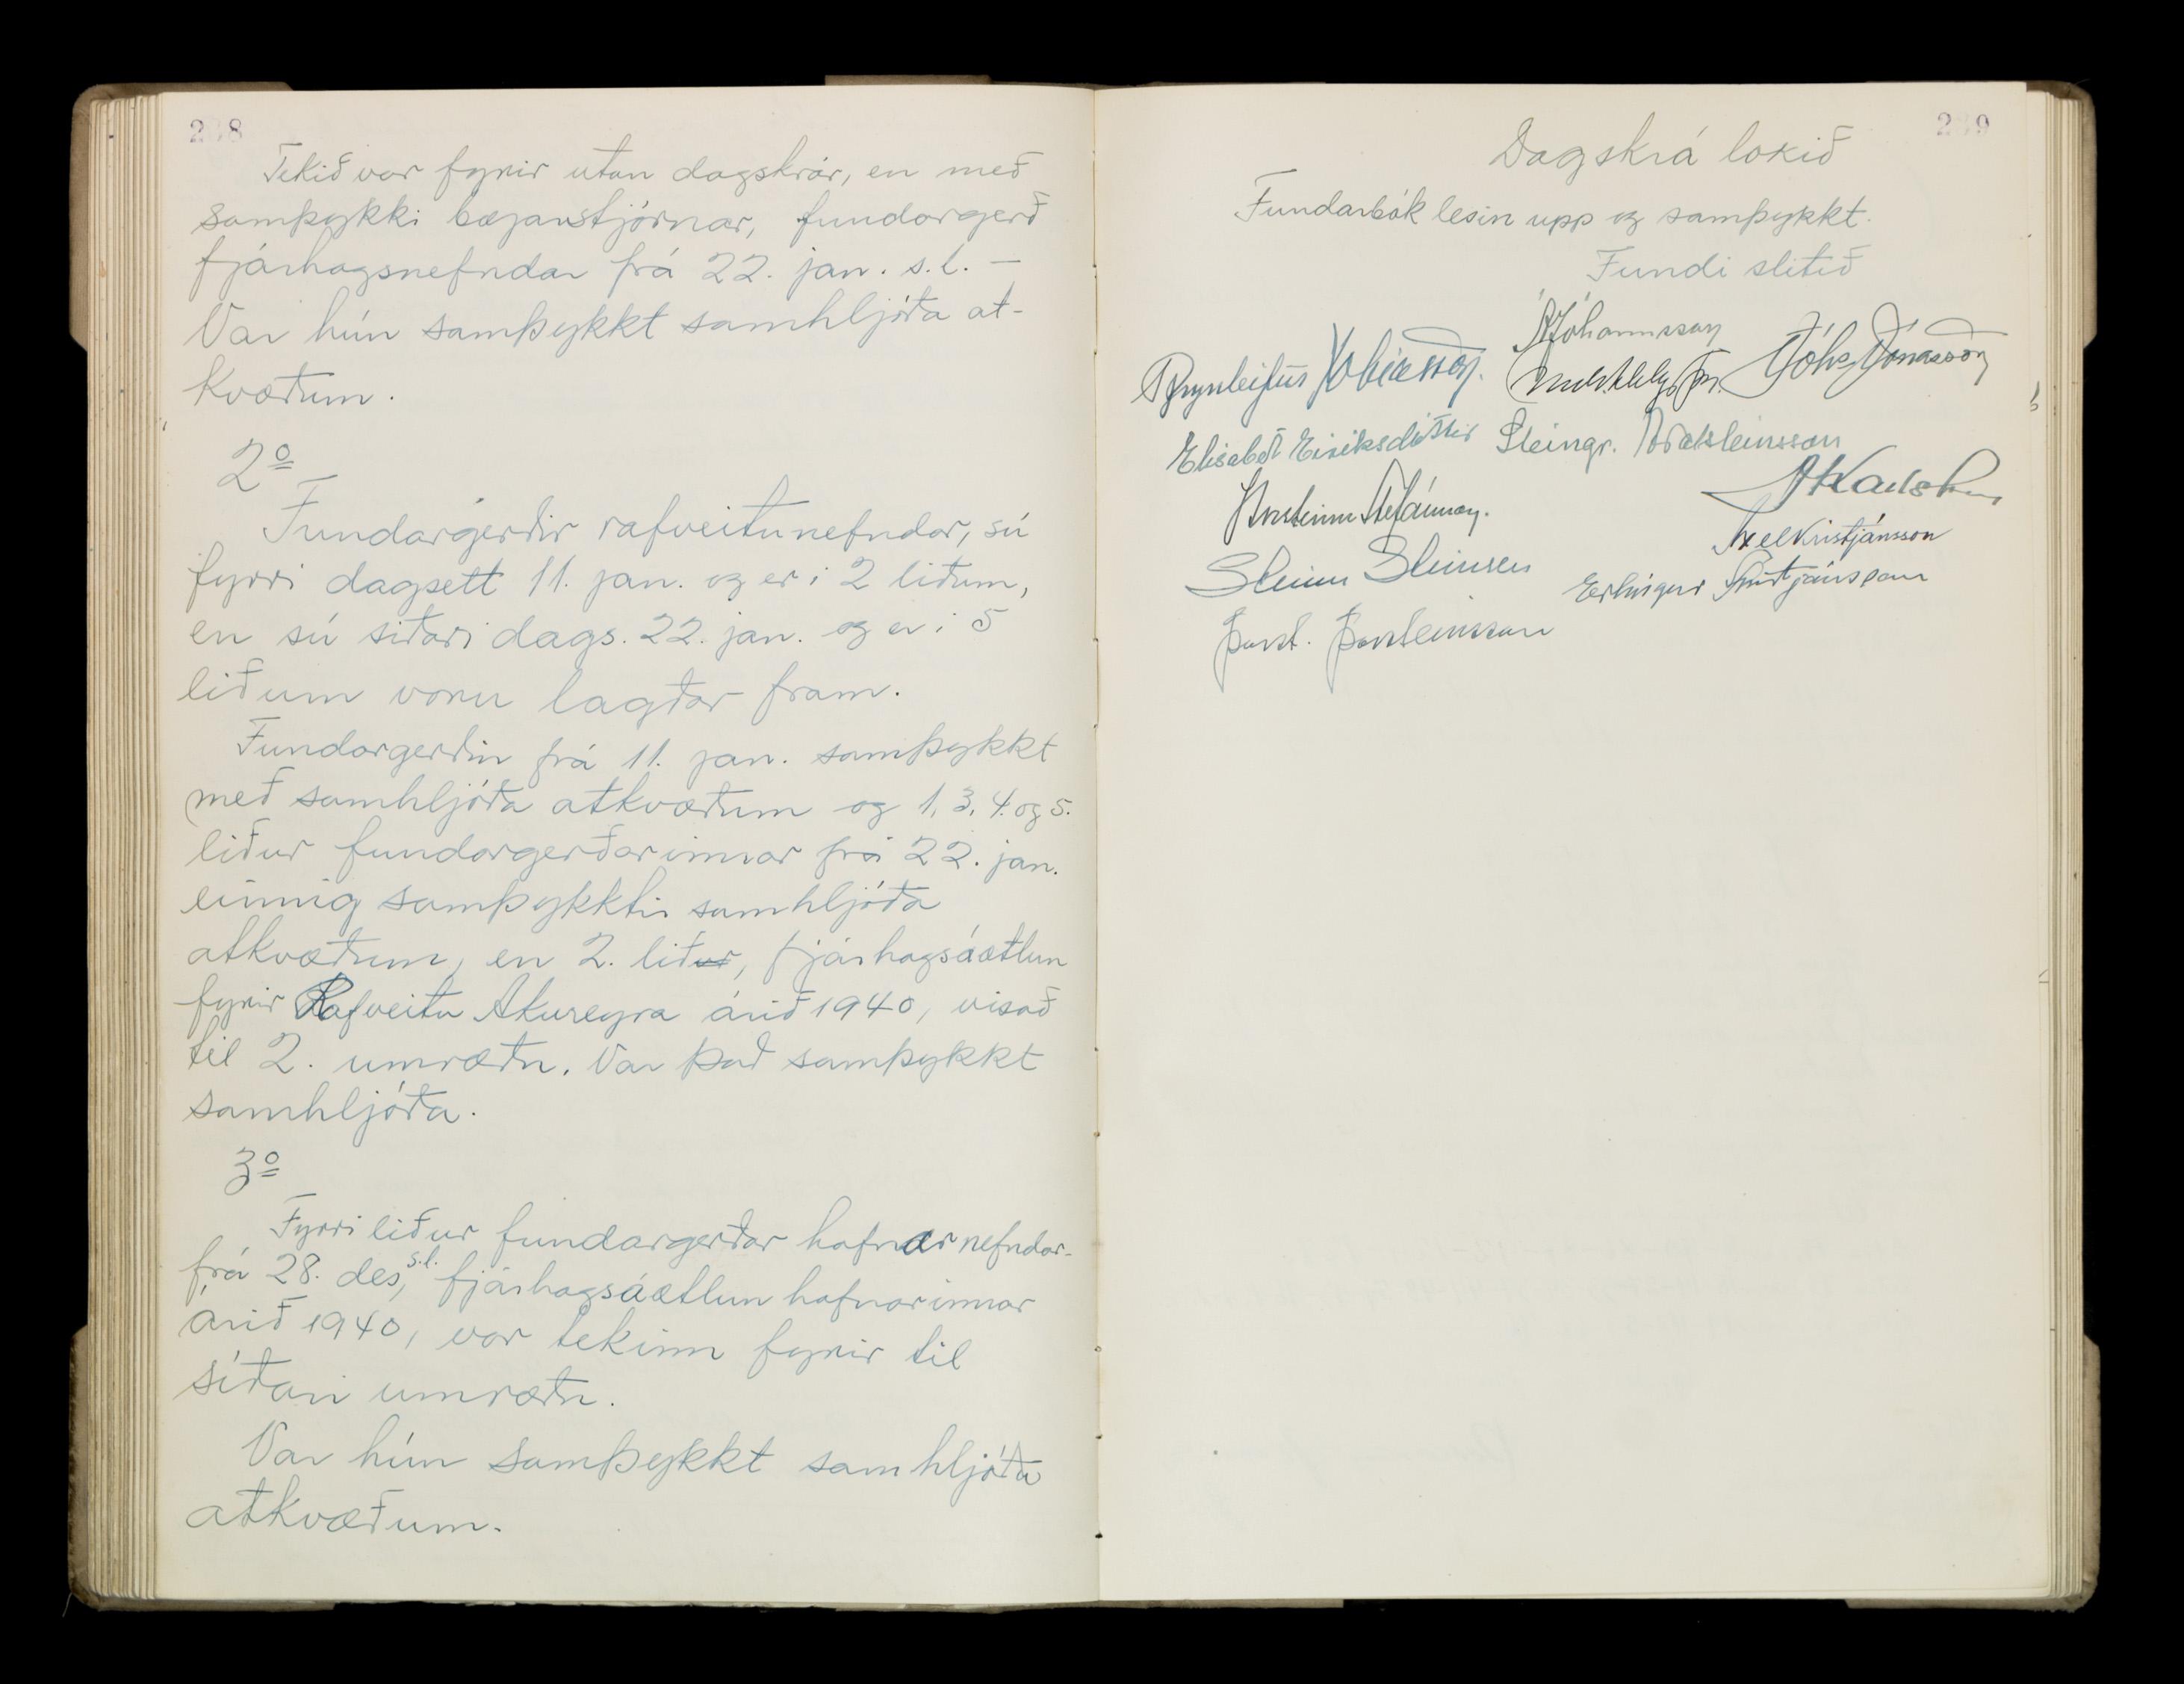 238
Tekið var fyrir utan dagskrár, en með
samþykki bæjarstjórnar, fundargerð
fjárhagsnefndar frá 22. jan. s.l. –
Var hún samþykkt samhljóða at-
kvæðum.
2º
Fundargerðir rafveitunefndar, sú
fyrri dagsett 11. jan. og er i 2 liðum,
en sú siðari dags. 22. jan. og er i 5
liðum voru lagðar fram.
Fundargerðin frá 11. jan. samþykkt
með samhljóða atkvæðum og 1, 3, 4. og 5.
liður fundargerðarinnar frá 22. jan.
einnig samþykktir samhljóða
atkvæðum, en 2. liður, fjárhagsáætlun
fyrir Rafveitu Akureyra árið 1940, visað
til 2. umræðu. Var það samþykkt
samhljóða.
3º
Fyrri liður fundargerðar hafnarnefndar
frá 28. des, s.l. fjárhagsáætlun hafnarinnar
árið 1940, var tekinn fyrir til
síðari umræðu.
Var hún samþykkt samhljóða
atkvæðum.
239
Dagskrá lokið
Fundarbók lesin upp og samþykkt.
Fundi slitið
Jóhannsson
Brynleifur Tobiasson. Jóhs Jónasson
Elisabet Eiriksdóttir Steingr. Aðalsteinsson
Þorsteinn Stefánsson. J Karlsson
Axel Kristjánsson
Steinn Steinsen Erlingur Friðjónsson
Þorst. Þorsteinsson